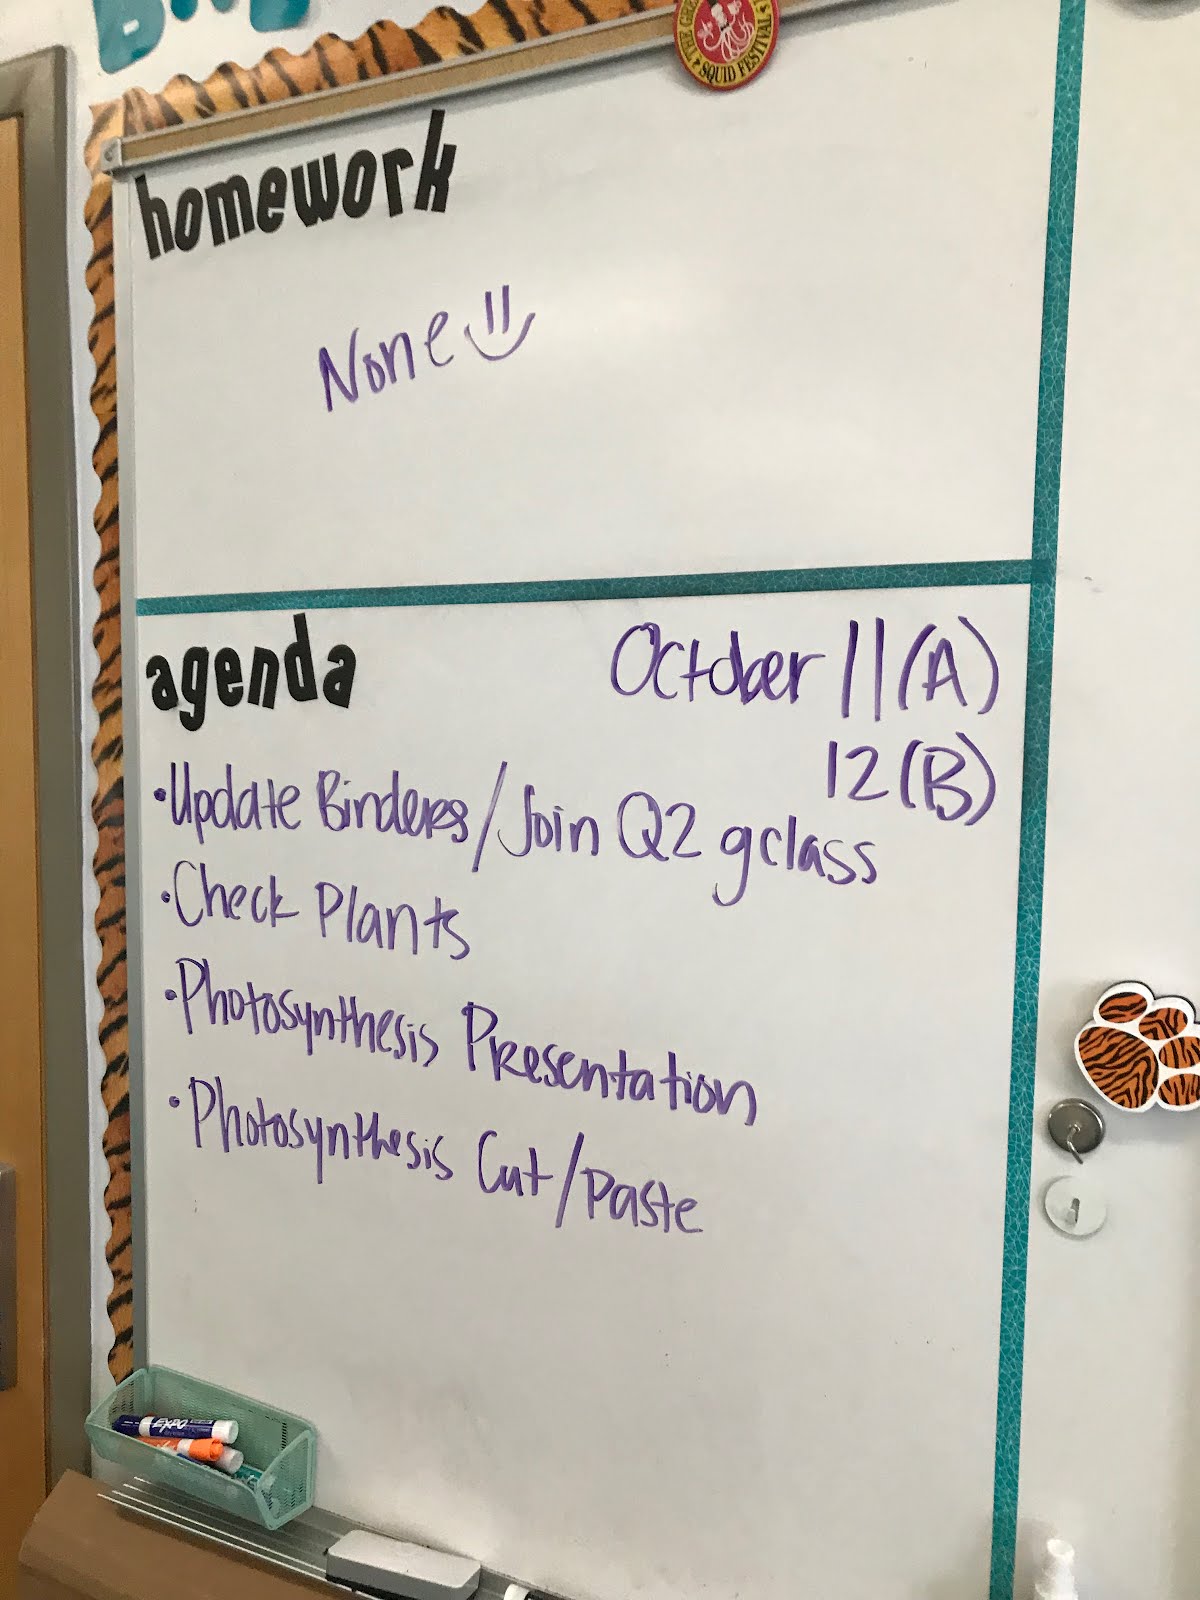 SQUID FESTIVAL
homework
None
agenda
October 11 (A)
12 (B)
•Update Binders/Join Q2 gclass
•Check Plants
•Photosynthesis Presentation
•Photosynthesis Cut/Paste
EXPO